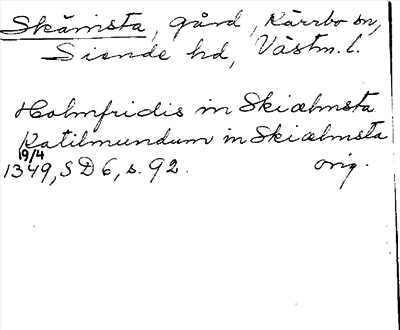 Skämsta, gård, Kärrbo sn,
Siende hd, Västm. l.
Holmfridis in Skiælmsta
Katilmundum in Skiælmsta
19/4
1349, SD 6, s. 92. orig.